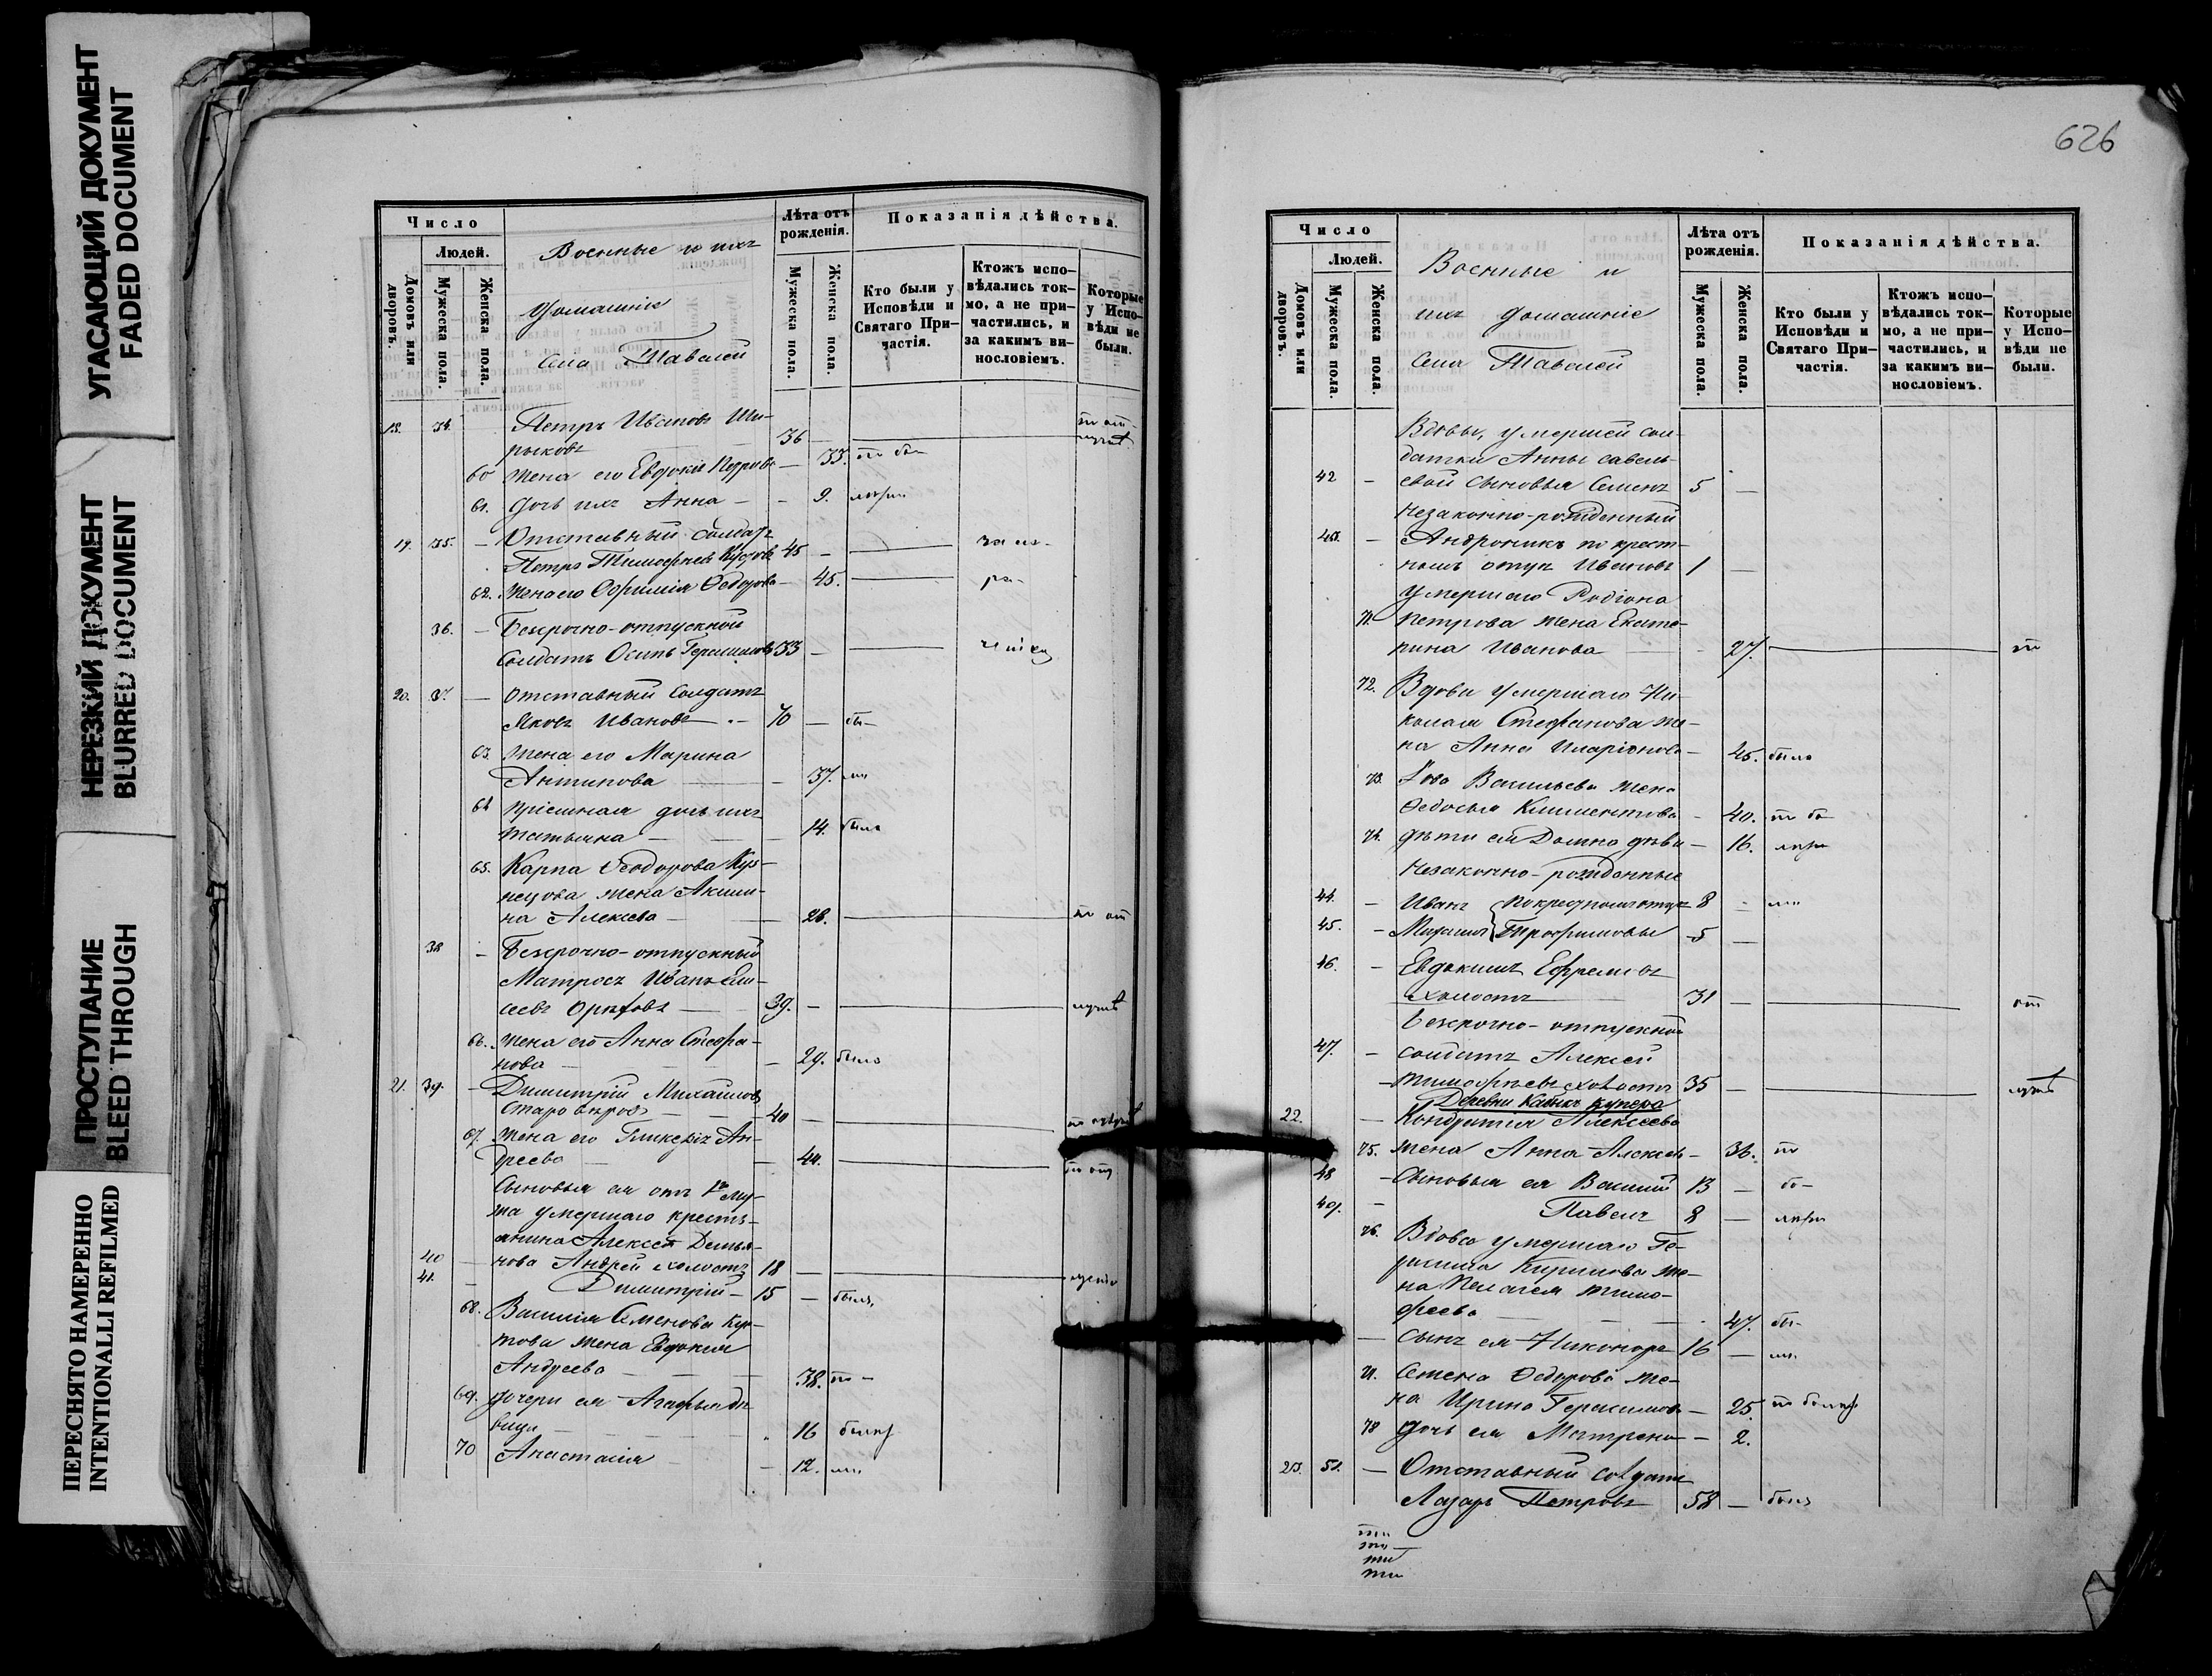 УГАСАЮЩИЙ ДОКУМЕНТ
FADED DOCUMENT
НЕРЕЗКИЙ ДОКУМЕНТ
BLURRED DOCUMENT
ПРОСТУПАНИЕ
BLEED THROUGH
ПЕРЕСНЯТО НАМЕРЕННО
INTENTIONALLI REFILMED
Число
Людей.
Домовъ или дворовъ.
Мужеска пола.
Женска пола.
Военные и ихъ
домашніе
села Тавелей
Лѣта отъ рожденія.
Мужеска пола.
Женска пола.
Показанія дѣйства.
Кто были у Исповѣди и Святаго При-частія.
Ктожъ испо-вѣдались ток-мо, а не при-частились, и за какимъ ви-нословіемъ.
Которые у Испо-вѣди не были.
18. 34. Петръ Ивановъ Ши-
рыковъ 36 —
60 Жена его Евдокія — 33.
61. Дочь ихъ Анна — - 9.
19. 35. — Отставный солдатъ
Петръ Тимофеевъ 45 —
62. Жена его Ефимія Ѳедорова — 45.
36. — Безсрочно-отпускной
солдатъ Осипъ Герасимовъ 33 —
20. 37. — Отставный солдатъ
Яковъ Ивановъ — 70 —
63. Жена его Марина
Антипова — 37.
64 Пріемная дочь ихъ
Татьяна — 14. была
65. Карпа Ѳеодорова Куз-
нецова жена Акили-
на Алексева — 28.
38 — Безсрочно-отпускный
Матросъ Иванъ Ели-
сеевъ 39. —
66. Жена его Анна Стефа-
нова — 29. была
21. 39. — Димитрій Михайловъ
Старовѣровъ — 40 —
67. Жена его Гликерія Ан-
дреева — 44.
Сыновья ея отъ 1го му-
жа умершаго кресть-
янина Алексея Демья-
40 — нова Андрей холостъ 18 —
41. — Димитрій — 15 — былъ
68. Василія Семенова
жена Евдокія
Андреева — 38.
69. Дочери ея Агафья дѣ-
вица — 16
70 Анастасія — 12.
626
Число
Людей.
Домовъ или дворовъ.
Мужеска пола.
Женска пола.
Военные и
ихъ домашніе
села Тавелей
Лѣта отъ рожденія.
Мужеска пола.
Женска пола.
Показанія дѣйства.
Кто были у Исповѣди и Святаго При-частія.
Ктожъ испо-вѣдались ток-мо, а не при-частились, и за какимъ ви-нословіемъ.
Которые у Испо-вѣди не были.
Вдовы, умершей сол-
датки Анны Савель-
42 — евой сыновья Семенъ 5 —
Незаконно-рожденный
43. — Андроникъ по крест-
номъ отцѣ Ивановъ 1 —
Умершаго Родіона
71. Петрова жена Екате-
рина Иванова — 27.
72. Вдова умершаго Ни-
колая Стефанова же-
на Анна Иларіонова — 45. была
73. Васильева жена
Ѳедосья Климентова — 40.
74. Дѣти ея Домна дѣвица — 16.
Незаконно-рожденные
44. — Иванъ по крестномъ отцѣ 8
45. — Михаилъ Трофимовы 5 —
46. — Евдокимъ Ефремовъ
холостъ 31 —
Безсрочно-отпускной
47. — солдатъ Алексей
— Тимофеевъ холостъ 35 —
Деревни
22. — Кондратія Алексеева
75. Жена Анна Алексеева — 36.
48 — Сыновья ея Василій 13 —
49. — Павелъ 8 —
76. Вдова умершаго Ге-
расима Кирилова же-
на Пелагея Тимо-
феева — 47.
— Сынъ ея Никоноръ 16 —
Семена Ѳедорова же-
на Ирина Герасимова — 25.
78 Дочь ея Матрена — 2.
23. 51. — Отставный солдатъ
Лазарь Петровъ 58 — былъ